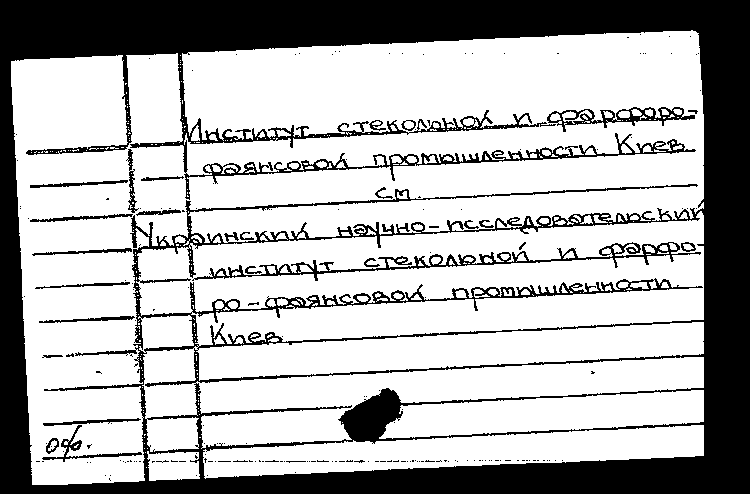 Институт стекольной и фарфоро-
фаянсовой промышленности. Киев
см.
Украинский научно-исследовательский
институт стекольной и фарфо-
ро-фаянсовой промышленности.
Киев.